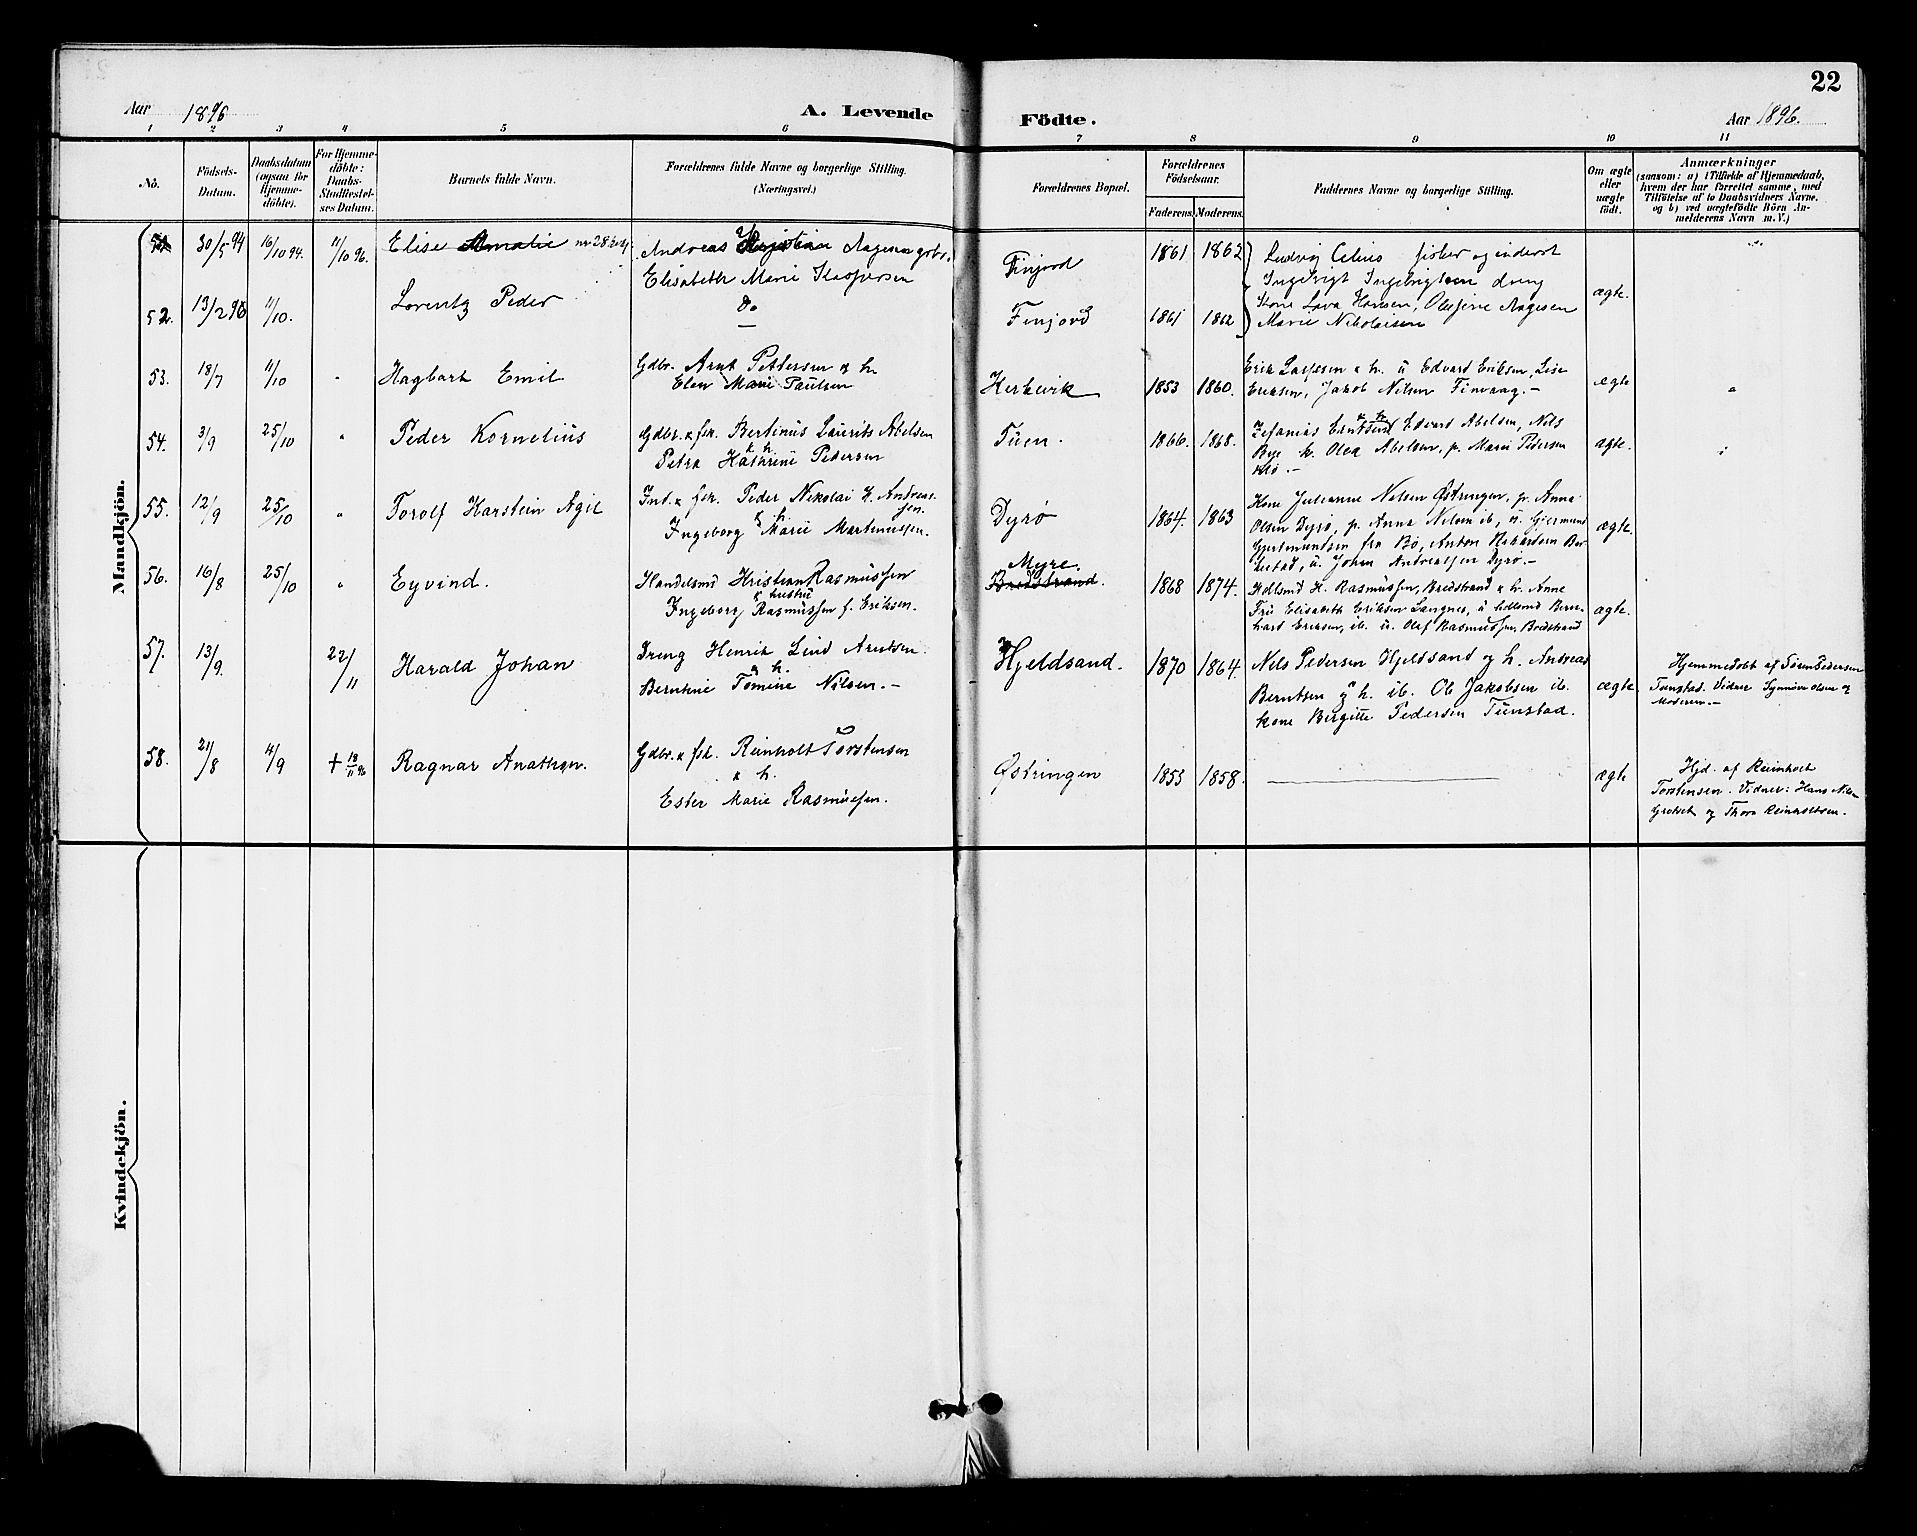 22
Aar 1896
A. Levende Födte.
Aar 1896.
1 2 3 4 5 6 7 8 9 10 11
No.
Födsels-
Datum.
Daabsdatum
(ogsaa for
Hjemme-
döbte).
For Hjemme-
döbte:
Daabs-
Stadfæstel-
ses Datum.
Barnets fulde Navn.
Forældrenes fulde Navne og borgerlige Stilling.
(Næringsvei.)
Forældrenes Bopæl.
Forældrenes
Födselsaar.
Faderens. Moderens.
Faddernes Navne og borgerlige Stilling.
Om ægte
eller
uægte
födt.
Anmærkninger
(saasom: a) i Tilfælde af Hjemmedaab,
hvem der har forrettet samme, med
Tilföielse af to Daabsvidners Navne,
og b) ved uægtefödte Börn An-
melderens Navn m. V.)
Mandkjön.
30/5 94 16/10 94. 11/10 96. Elise Amalie
Andreas Aagesen gdbr.
Elisabeth Marie Kaspersen
Finjord 1861 1862
Ludvig Celius fisker og inderst
Ingebrigt Ingebrigtsen dreng
Kone Lova Hansen, Olefine Aagesen
Marie Nikolaisen
ægte.
52. 13/2 96 11/10. Lorentz Peder
Do
Finjord 1861 1862
53. 18/7 11/10 " Hagbart Emil
Gdbr. Arnt Pettersen & h.
Elen Marie Paulsen
1853 1860.
Erik Lassesen & h. u Edvard Eriksen, Lise
Eriksen, Jakob Nilsen Finvaag.-
ægte "
54. 3/9 25/10 " Peder Kornelius
Gdbr. & fsk. Bertinus Laurits Abelsen
& h.
Petra Kathrine Pedersen
Tuen. 1866. 1868.
Zefanias Berntsen & h. Edvard Abelsen, Nils
Bye k. Olea Abelsen, p. Marie Pedersen
Klo.-
ægte.
55. 12/9 25/10 " Torolf Harstein Agil
Ind. & fsk. Peder Nikolai K. Andreas-
sen.
& h.
Ingeborg Marie Martinussen.
Dyrø 1864. 1863
Kone Julianne Nilsen Østringen, p. Anna
Olsen Dyrø, p. Anna Nilsen ib, u. Gjermund
Gjermundsen fra Bø, Anton Rikardsen
u. Johan Andreassen Dyrø.-
ægte.
56. 16/8 25/10 " Eyvind.
Handelsmd Kristian Rasmussen
& hustru
Ingeborg Rasmussen f. Eriksen.
Myre
Bredstrand. 1868 1874.
Hdlsmd H. Rasmussen, Bredstrand & h. Anne
Fru Elisabeth Eriksen Langnes, u hdlsmd Bern-
hard Eriksen, ib. u. Olaf Rasmussen, Bredstrand
ægte.
57. 13/9. 22/11 Harald Johan
Dreng Henrik Lind Arntsen.
& h.
Berntine Tomine Nilsen.-
Hjeldsand. 1870 1864.
Nils Pedersen Hjeldsand og h. Andreas
Berntsen og h. ib. Ole Jakobsen ib.
kone Bergitte Pedersen Tunstad.
ægte
Hjemmedøbt af Søren Pedersen
Tunstad. Vidner Synnøve Olsen og
Moderen.-
58. 21/8 4/9 + 18/11 96 Ragnar Anathon.
Gdbr. & fsk. Reinholt Torstensen
& h.
Ester Marie Rasmussen.
Østringen 1853 1858.
ægte
Hjd. af Reinholt
Torstensen. Vidner: Hans Nils-
Grotset og Thora Reinholtsen.
Kvindekjön.